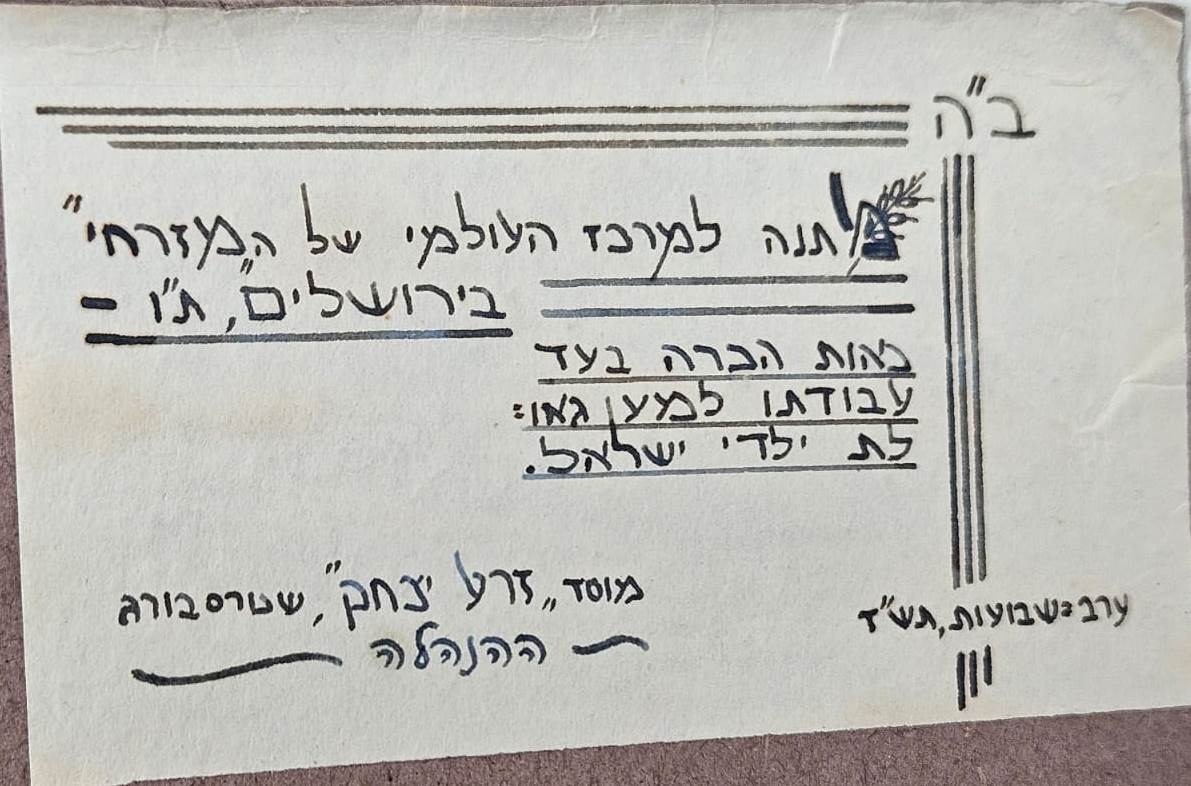 ב"ה
מתנה למרכז העולמי של ה"מזרחי"
בירושלים, ת"ו -
כאות הכרה בעד
עבודתו למען גאו=
לת ילדי ישראל.
מוסד „זרע יצחק", שטרסבורג
ההנהלה
ערב=שבועות, תש"ד